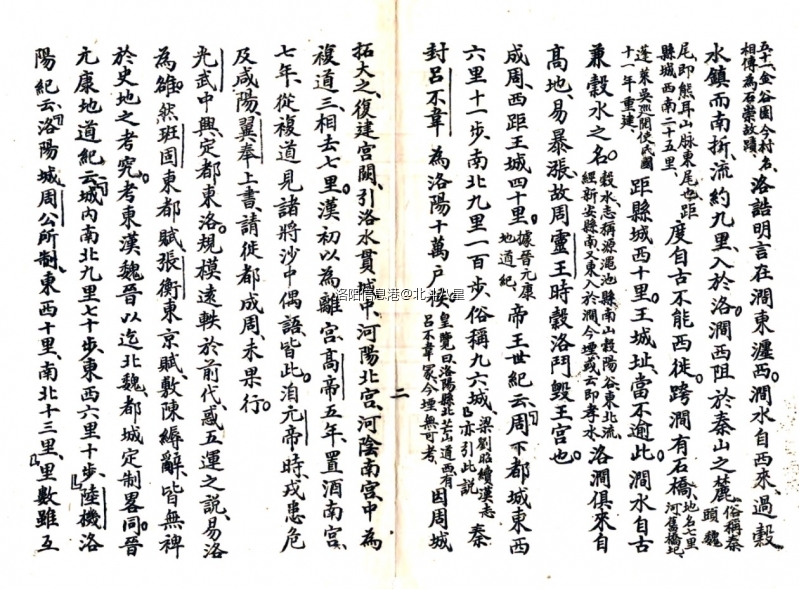 五十一、金谷園今村名、
相傳為石崇故蹟、
洛誥明言在澗東瀍西。澗水自西來、過穀
水鎮而南折、流約九里、入於洛。澗西阻於秦山之麓、
俗稱秦
頭魏
尾、即熊耳山脉東尾也、距
縣城西南二十五里、
度自古不能西徙。跨澗有石橋、
地名七里
河舊橋圮、
蓬萊吳
閒使民國
十一年重建、
距縣城西十里。王城址、當不逾此。澗水自古
兼穀水之名。
穀水、志稱源澠池縣南山穀陽谷、東北流、
經新安縣南、又東入於澗今堙或云即孝水
洛澗俱來自
高地、易暴漲、故周靈王時穀洛鬥毀王宮也。
成周、西距王城四十里。
據晉元康
地道紀、
帝王世紀云、「周下都城東西
六里十一步、南北九里一百步、俗稱九六城、
梁劉昭續漢志
亦引此說
秦
封呂不韋為洛陽十萬户侯、
皇覽曰洛陽縣北芒山道西有
呂不韋冢今堙無可考、
因周城
二
拓大之、復建宮闕、引洛水貫城中、河陽北宮、河陰南宮、中為
複道三、相去七里。漢初以為離宮、高帝五年、置酒南宮、
七年、從複道見諸將沙中偶語、皆此。洎元帝時、戎患危
及咸陽、翼奉上書、請徙都成周、未果行。
光武中興、定都東洛。規模遠軼於前代、惑五運之說、易洛
為雒。然班固東都賦、張衡東京賦、敷陳縟辭、皆無裨
於史地之考究。考東漢魏晉以迄北魏、都城定制畧同。晉
元康地道紀云、「城内南北九里七十步、東西六里十步」、陸機洛
陽紀云、「洛陽城周公所制、東西十里、南北十三里」、里數雖互
洛阳信息港@北斗九星